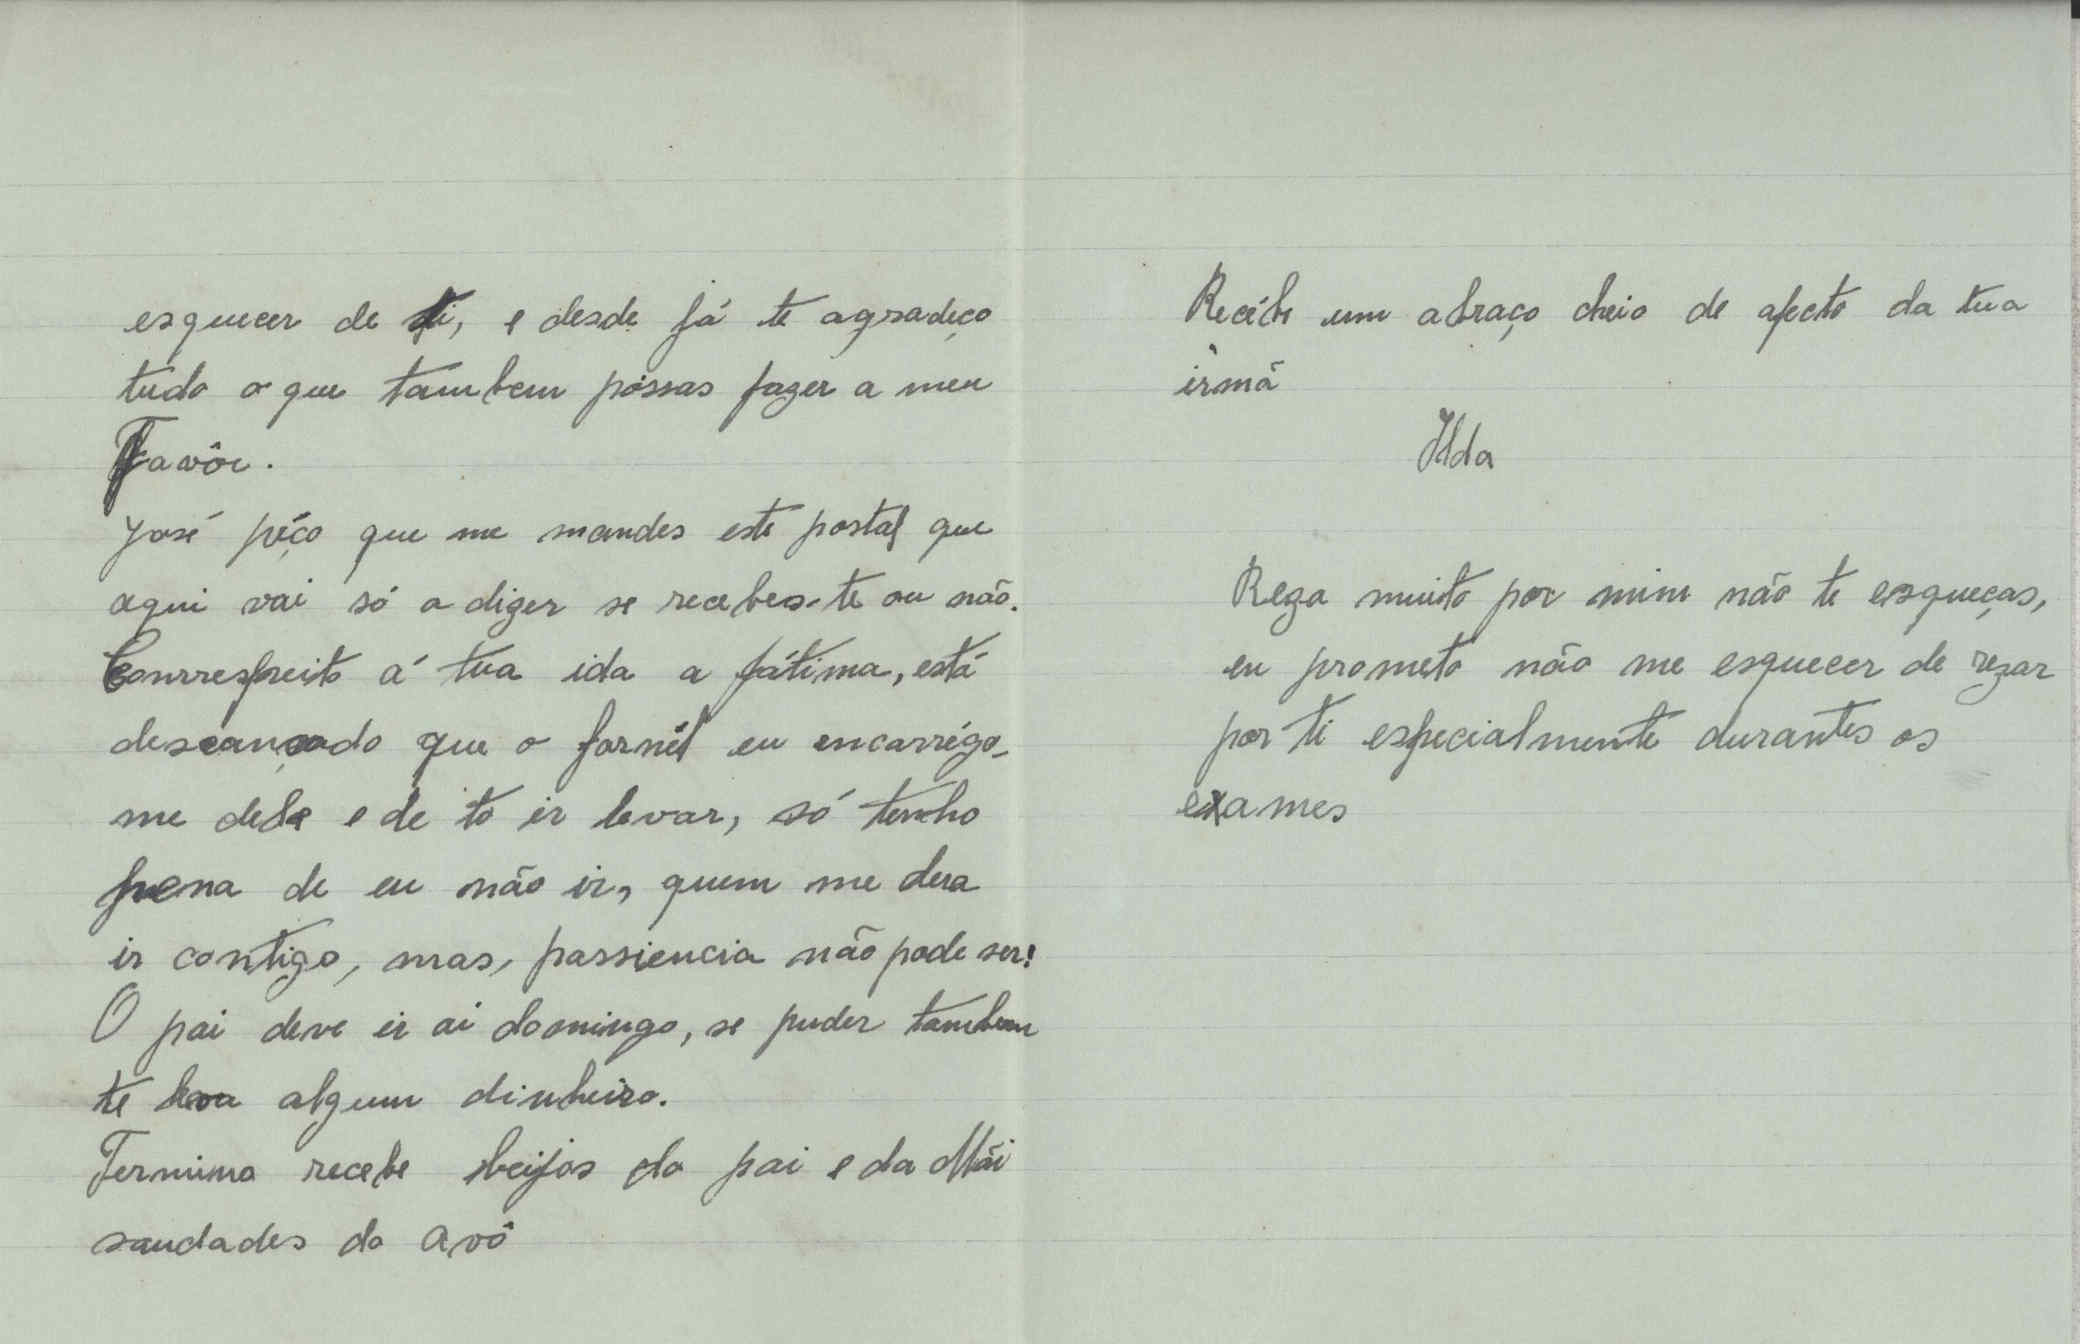 esquecer de ti, e desde já te agradeço
tudo o que tambem póssas fazer a meu
Favôr.
José péço que me mandes este postal que
aqui vai só a dizer se recebes-te ou não.
Conrrespeito á tua ida a fátima, está
descançado que o farnél eu encarrégo-
me dele e de to ir levar, só tenho
pena de eu não ir, quem me dera
ir contigo, mas, passiencia não pode ser!
O pai deve ir ai domingo, se puder tambem
te leva algum dinheiro.
Termino recebe beijos do pai e da Mãi
saudades do avô
Recébe um abraço cheio de afecto da tua
irmã
Ilda
Reza muito por mim não te esqueças,
eu prometo não me esquecer de rezar
por ti especialmente durantes os
exames